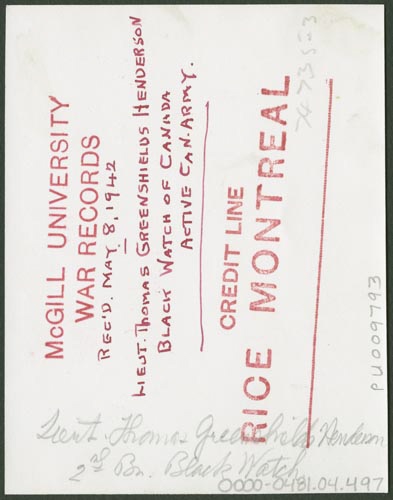 McGILL UNIVERSITY
WAR RECORDS
REC'D. MAY 8, 1942
LIEUT. THOMAS GREENSHIELDS HENDERSON
BLACK WATCH OF CANADA
ACTIVE CAN. ARMY.
CREDIT LINE
RICE MONTREAL
PU009793
Lieut. Thomas Greenshields Henderson
2nd Bn. Black Watch
0000-0481.04.497